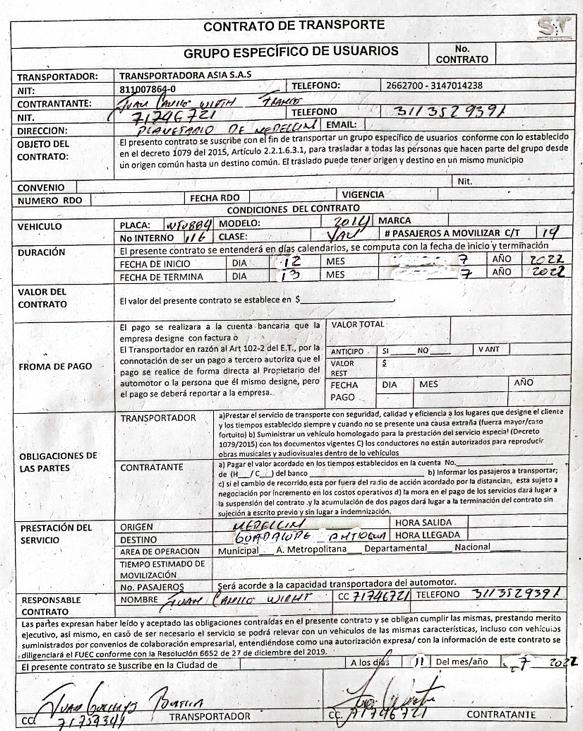 CONTRATO DE TRANSPORTE
GRUPO ESPECÍFICO DE USUARIOS
No. CONTRATO
TRANSPORTADOR: TRANSPORTADORA ASIA S.A.S
NIT: 811007864-0 TELEFONO: 2662700 - 3147014238
CONTRANTANTE: Juan Camilo
NIT. 71746721 TELEFONO 3113529391
DIRECCION: PLANETARIO DE MEDELLIN EMAIL:
OBJETO DEL CONTRATO:
El presente contrato se suscribe con el fin de transportar un grupo específico de usuarios conforme con lo establecido
en el decreto 1079 del 2015, Artículo 2.2.1.6.3.1, para trasladar a todas las personas que hacen parte del grupo desde
un origen común hasta un destino común. El traslado puede tener origen y destino en un mismo municipio
CONVENIO Nit.
NUMERO RDO FECHA RDO VIGENCIA
CONDICIONES DEL CONTRATO
VEHICULO PLACA: MODELO: 2014 MARCA
No INTERNO 116 CLASE: VAN # PASAJEROS A MOVILIZAR C/T 19
DURACIÓN El presente contrato se entenderá en días calendarios, se computa con la fecha de inicio y terminación
FECHA DE INICIO DIA 12 MES 7 AÑO 2022
FECHA DE TERMINA DIA 13 MES 7 AÑO 2022
VALOR DEL CONTRATO
El valor del presente contrato se establece en $
FROMA DE PAGO
El pago se realizara a la cuenta bancaria que la
empresa designe con factura o
El Transportador en razón al Art 102-2 del E.T., por la
connotación de ser un pago a tercero autoriza que el
pago se realice de forma directa al Propietario del
automotor o la persona que él mismo designe, pero
el pago se deberá reportar a la empresa.
VALOR TOTAL
ANTICIPO SI NO V ANT
VALOR REST $
FECHA PAGO DIA MES AÑO
OBLIGACIONES DE LAS PARTES
TRANSPORTADOR
a)Prestar el servicio de transporte con seguridad, calidad y eficiencia a los lugares que designe el cliente
y los tiempos establecido siempre y cuando no se presente una causa extraña (fuerza mayor/caso
fortuito) b) Suministrar un vehículo homologado para la prestación del servicio especial (Decreto
1079/2015) con los documentos vigentes C) los conductores no están autorizados para reproducir
obras musicales y audiovisuales dentro de la vehículos
CONTRATANTE
a) Pagar el valor acordado en los tiempos establecidos en la cuenta No.
de (H__/ C__) del banco b) Informar los pasajeros a transportar;
c) si el cambio de recorrido, esta por fuera del radio de acción acordado por la distancian, esta sujeto a
negociación por incremento en los costos operativos d) la mora en el pago de los servicios dará lugar a
la suspensión del contrato y la acumulación de dos pagos dará lugar a la terminación del contrato sin
sujeción a escrito previo y sin lugar a indemnización.
PRESTACIÓN DEL SERVICIO
ORIGEN MEDELLIN HORA SALIDA
DESTINO GUADALUPE ANTIOQUIA HORA LLEGADA
AREA DE OPERACION Municipal__ A. Metropolitana__ Departamental__ Nacional
TIEMPO ESTIMADO DE MOVILIZACIÓN
No. PASAJEROS Será acorde a la capacidad transportadora del automotor.
RESPONSABLE CONTRATO NOMBRE Juan Camilo CC 71746721 TELEFONO 3113529391
Las partes expresan haber leído y aceptado las obligaciones contraídas en el presente contrato y se obligan cumplir las mismas, prestando merito
ejecutivo, así mismo, en caso de ser necesario el servicio se podrá relevar con un vehículos de las mismas características, incluso con vehículos
suministrados por convenios de colaboración empresarial, entendiéndose como una autorización expresa/ con la información de este contrato se
diligenciará el FUEC conforme con la Resolución 6652 de 27 de diciembre del 2019.
El presente contrato se suscribe en la Ciudad de A los días 11 Del mes/año 7 2022
CC. TRANSPORTADOR
CC. 71746721 CONTRATANTE